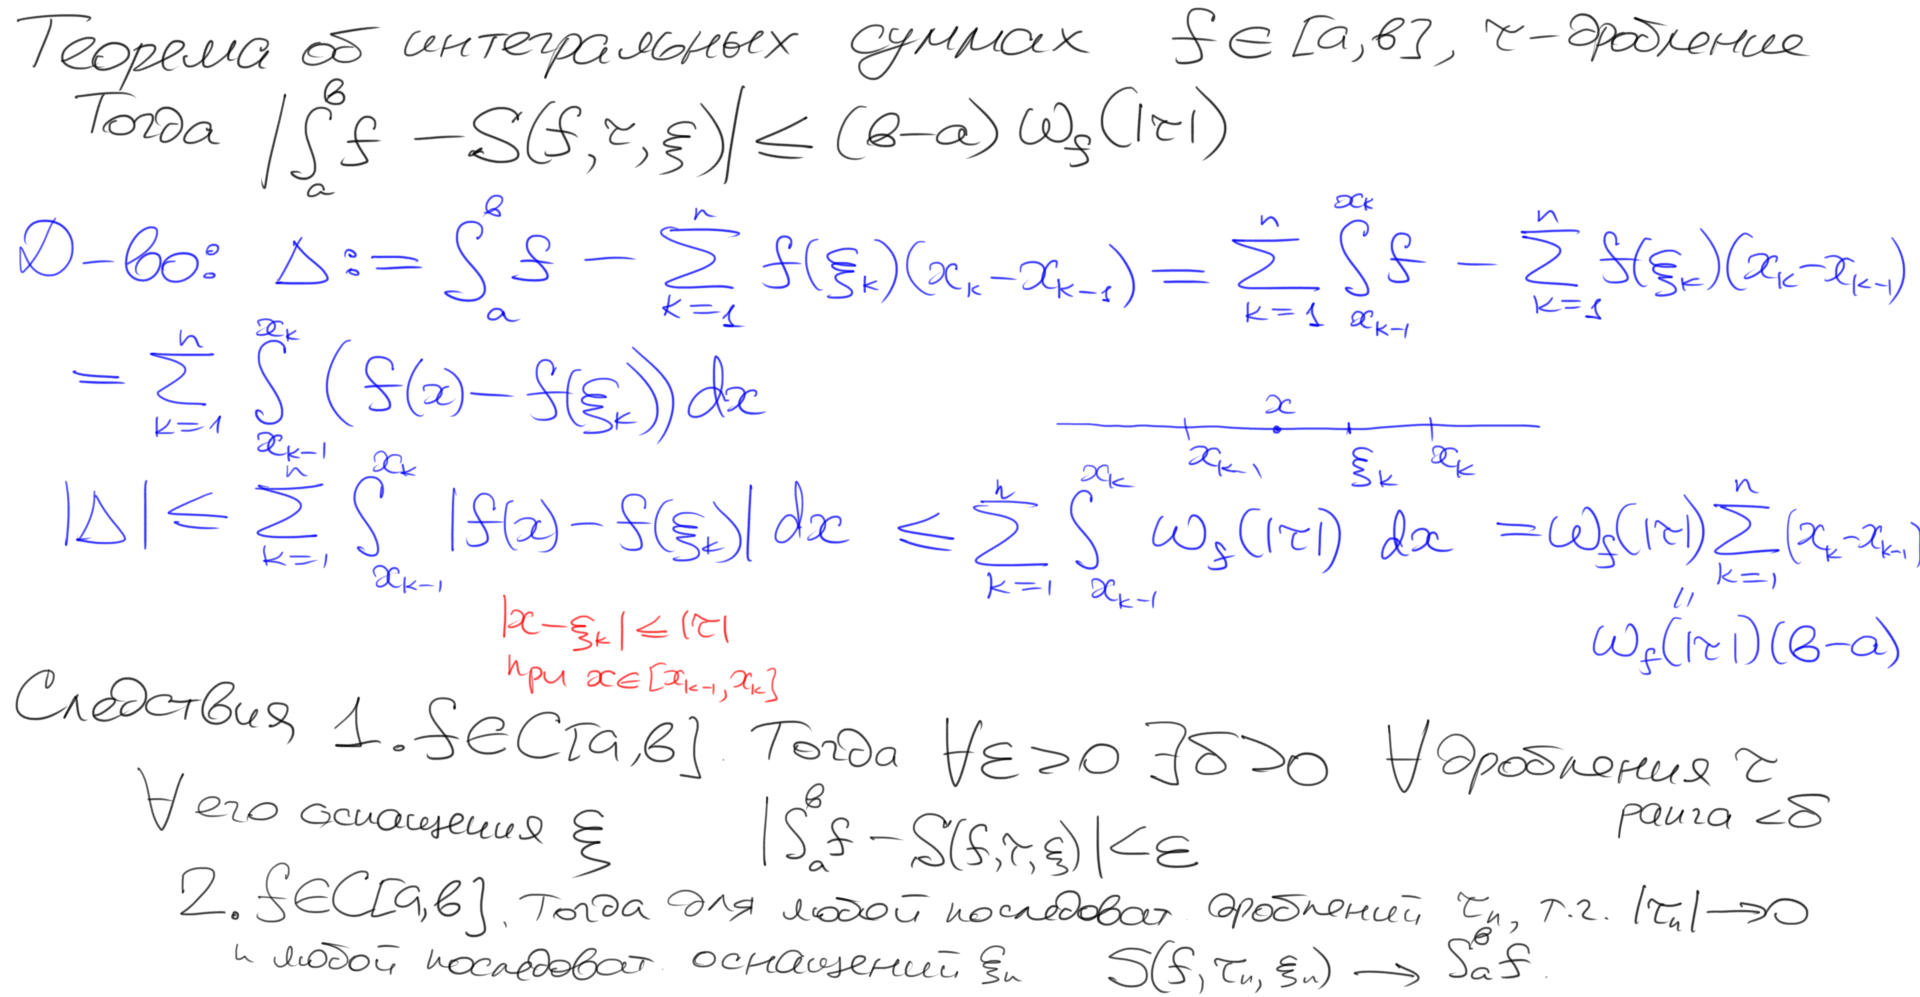 Теорема об интегральных суммах f ∈ [a, b], τ – дробление
Тогда |∫_a^b f – S(f, τ, ξ)| ≤ (b–a) ω_f(|τ|)
Д-во: Δ := ∫_a^b f – ∑_{k=1}^n f(ξ_k)(x_k – x_{k-1}) = ∑_{k=1}^n ∫_{x_{k-1}}^{x_k} f – ∑_{k=1}^n f(ξ_k)(x_k – x_{k-1})
= ∑_{k=1}^n ∫_{x_{k-1}}^{x_k} (f(x) – f(ξ_k)) dx
x
x_{k-1} ξ_k x_k
|Δ| ≤ ∑_{k=1}^n ∫_{x_{k-1}}^{x_k} |f(x) – f(ξ_k)| dx ≤ ∑_{k=1}^n ∫_{x_{k-1}}^{x_k} ω_f(|τ|) dx = ω_f(|τ|) ∑_{k=1}^n (x_k – x_{k-1})
|x – ξ_k| ≤ |τ|
при x ∈ [x_{k-1}, x_k]
=
ω_f(|τ|)(b–a)
Следствия 1. f ∈ C[a, b]. Тогда ∀ε > 0 ∃δ > 0 ∀ дробления τ
ранга < δ
∀ его оснащения ξ |∫_a^b f – S(f, τ, ξ)| < ε
2. f ∈ C[a, b]. Тогда для любой последоват. дроблений τ_n, т.ч. |τ_n| → 0
и любой последоват. оснащений ξ_n S(f, τ_n, ξ_n) → ∫_a^b f.